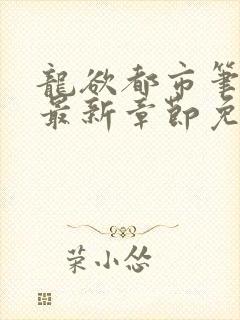 龍欲都市筆
最新章節免
菜小怂